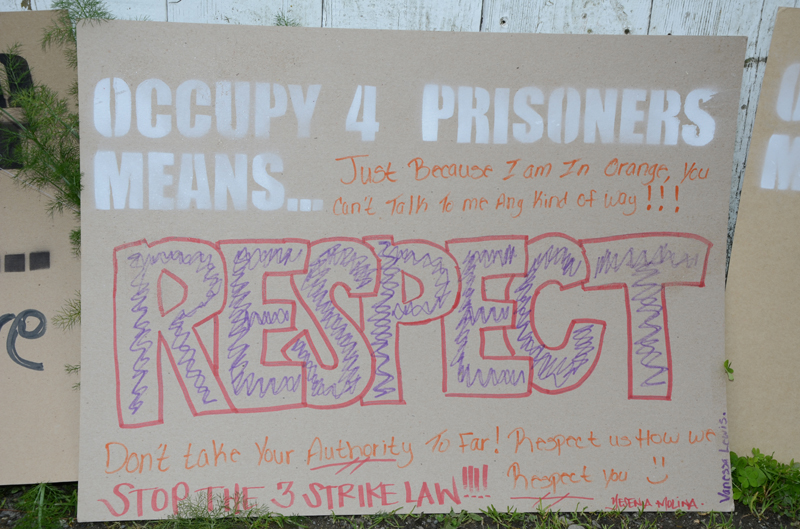 OCCUPY 4 PRISONERS
MEANS...
Just Because I am In Orange, You
Can't Talk To me Any Kind of way!!!
RESPECT
Don't take Your Authority To Far! Respect us How we
Respect you
STOP THE 3 STRIKE LAW!!!!
YESENIA MOLINA.
Vanessa Lewis.
re